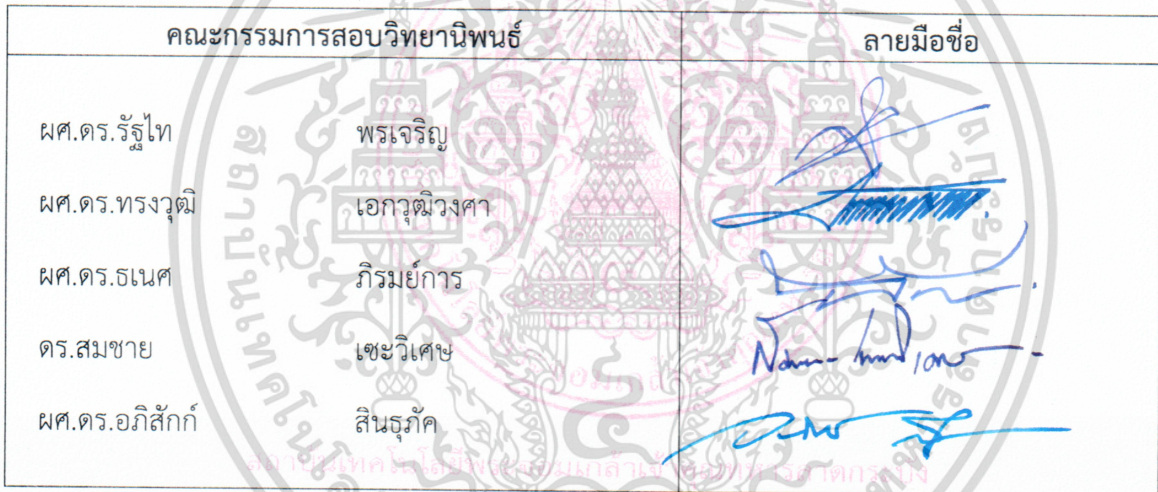 คณะกรรมการสอบวิทยานิพนธ์ ลายมือชื่อ
ผศ.ดร.รัฐไท พรเจริญ
ผศ.ดร.ทรงวุฒิ เอกวุฒิวงศา
ผศ.ดร.ธเนศ ภิรมย์การ
ดร.สมชาย เซะวิเศษ
ผศ.ดร.อภิสักก์ สินธุภัค
สถาบันเทคโนโลยีพระจอมเกล้าเจ้าคุณทหารลาดกระบัง